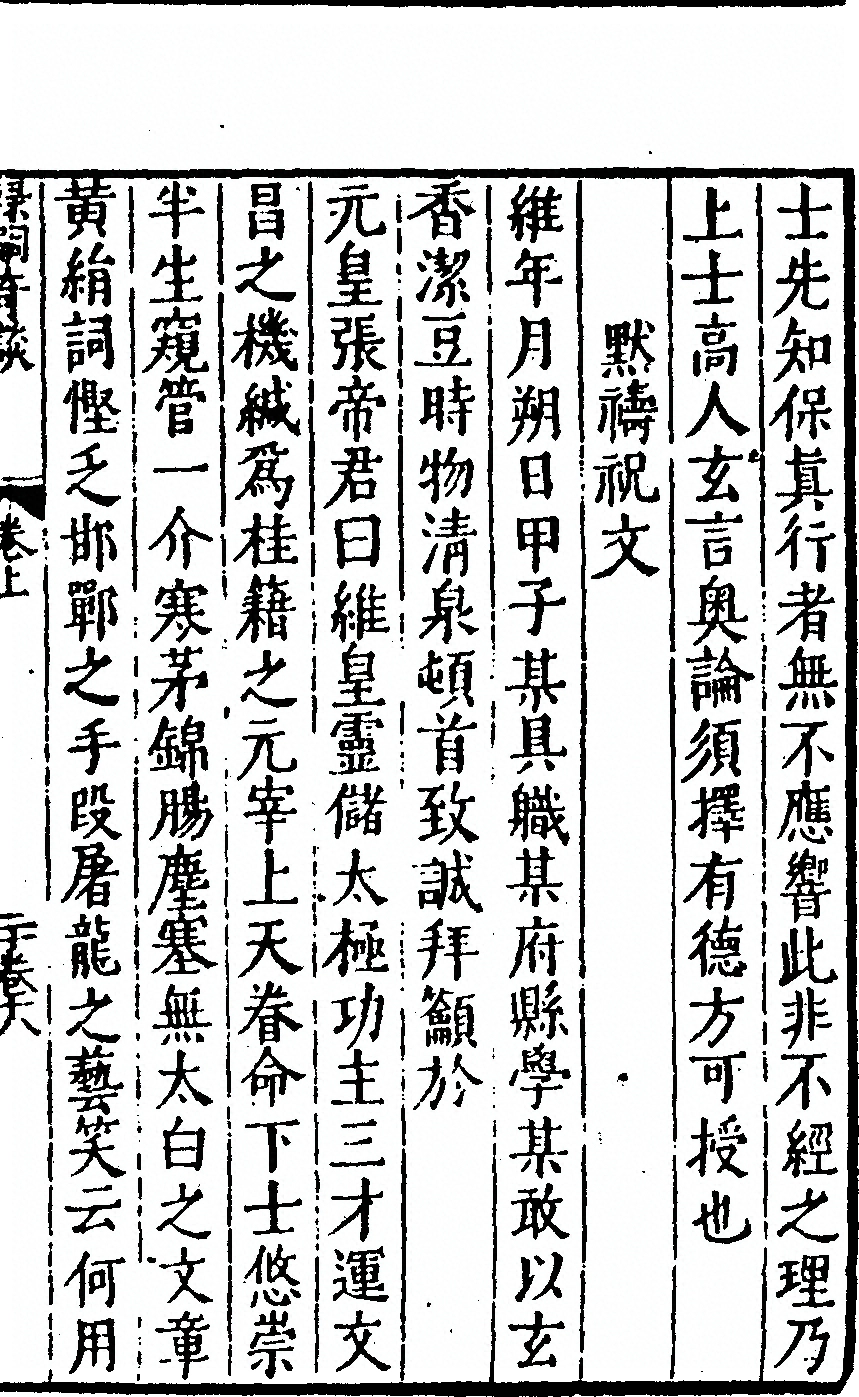 士先知保真行者無不應響此非不經之理乃
上士高人玄言奥論須擇有德方可授也
默禱祝文
維年月朔日甲子某具職某府縣學某敢以玄
香潔豆時物清泉頓首致誠拜籲於
元皇張帝君曰維皇靈儲太極功主三才運文
昌之機緘爲桂籍之元宰上天眷命下士悠崇
半生窺管一介寒茅錦腸塵塞無太白之文章
黄絹詞慳乏邯鄲之手段屠龍之藝笑云何用
卷上